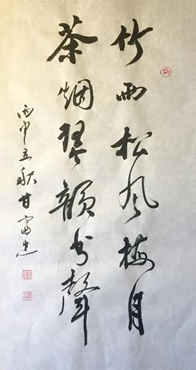 竹雨松风梅月
茶烟琴韻书聲
丙申立秋甘富忠